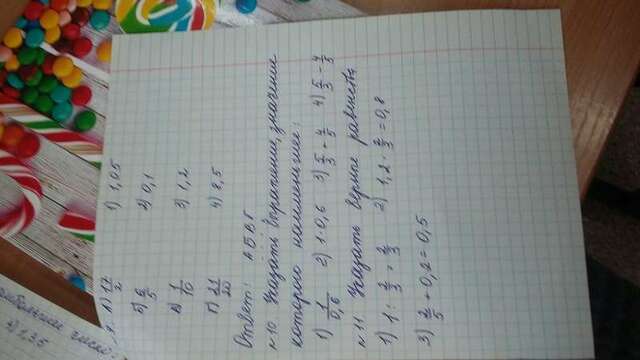 А) 17/2 1) 1,05
Б) 6/5 2) 0,1
В) 1/10 3) 1,2
Г) 21/20 4) 8,5
Ответ: А Б В Г
№10. Указать выражение, значение
которого наименьшее:
1) 1/0,6 2) 1·0,6 3) 5/3 + 4/5 4) 5/3 - 4/5
№11. Указать верные равенства
1) 1 : 2/3 = 2/3 2) 1,2 · 2/3 = 0,8
3) 2/5 + 0,2 = 0,5
4) 1,35